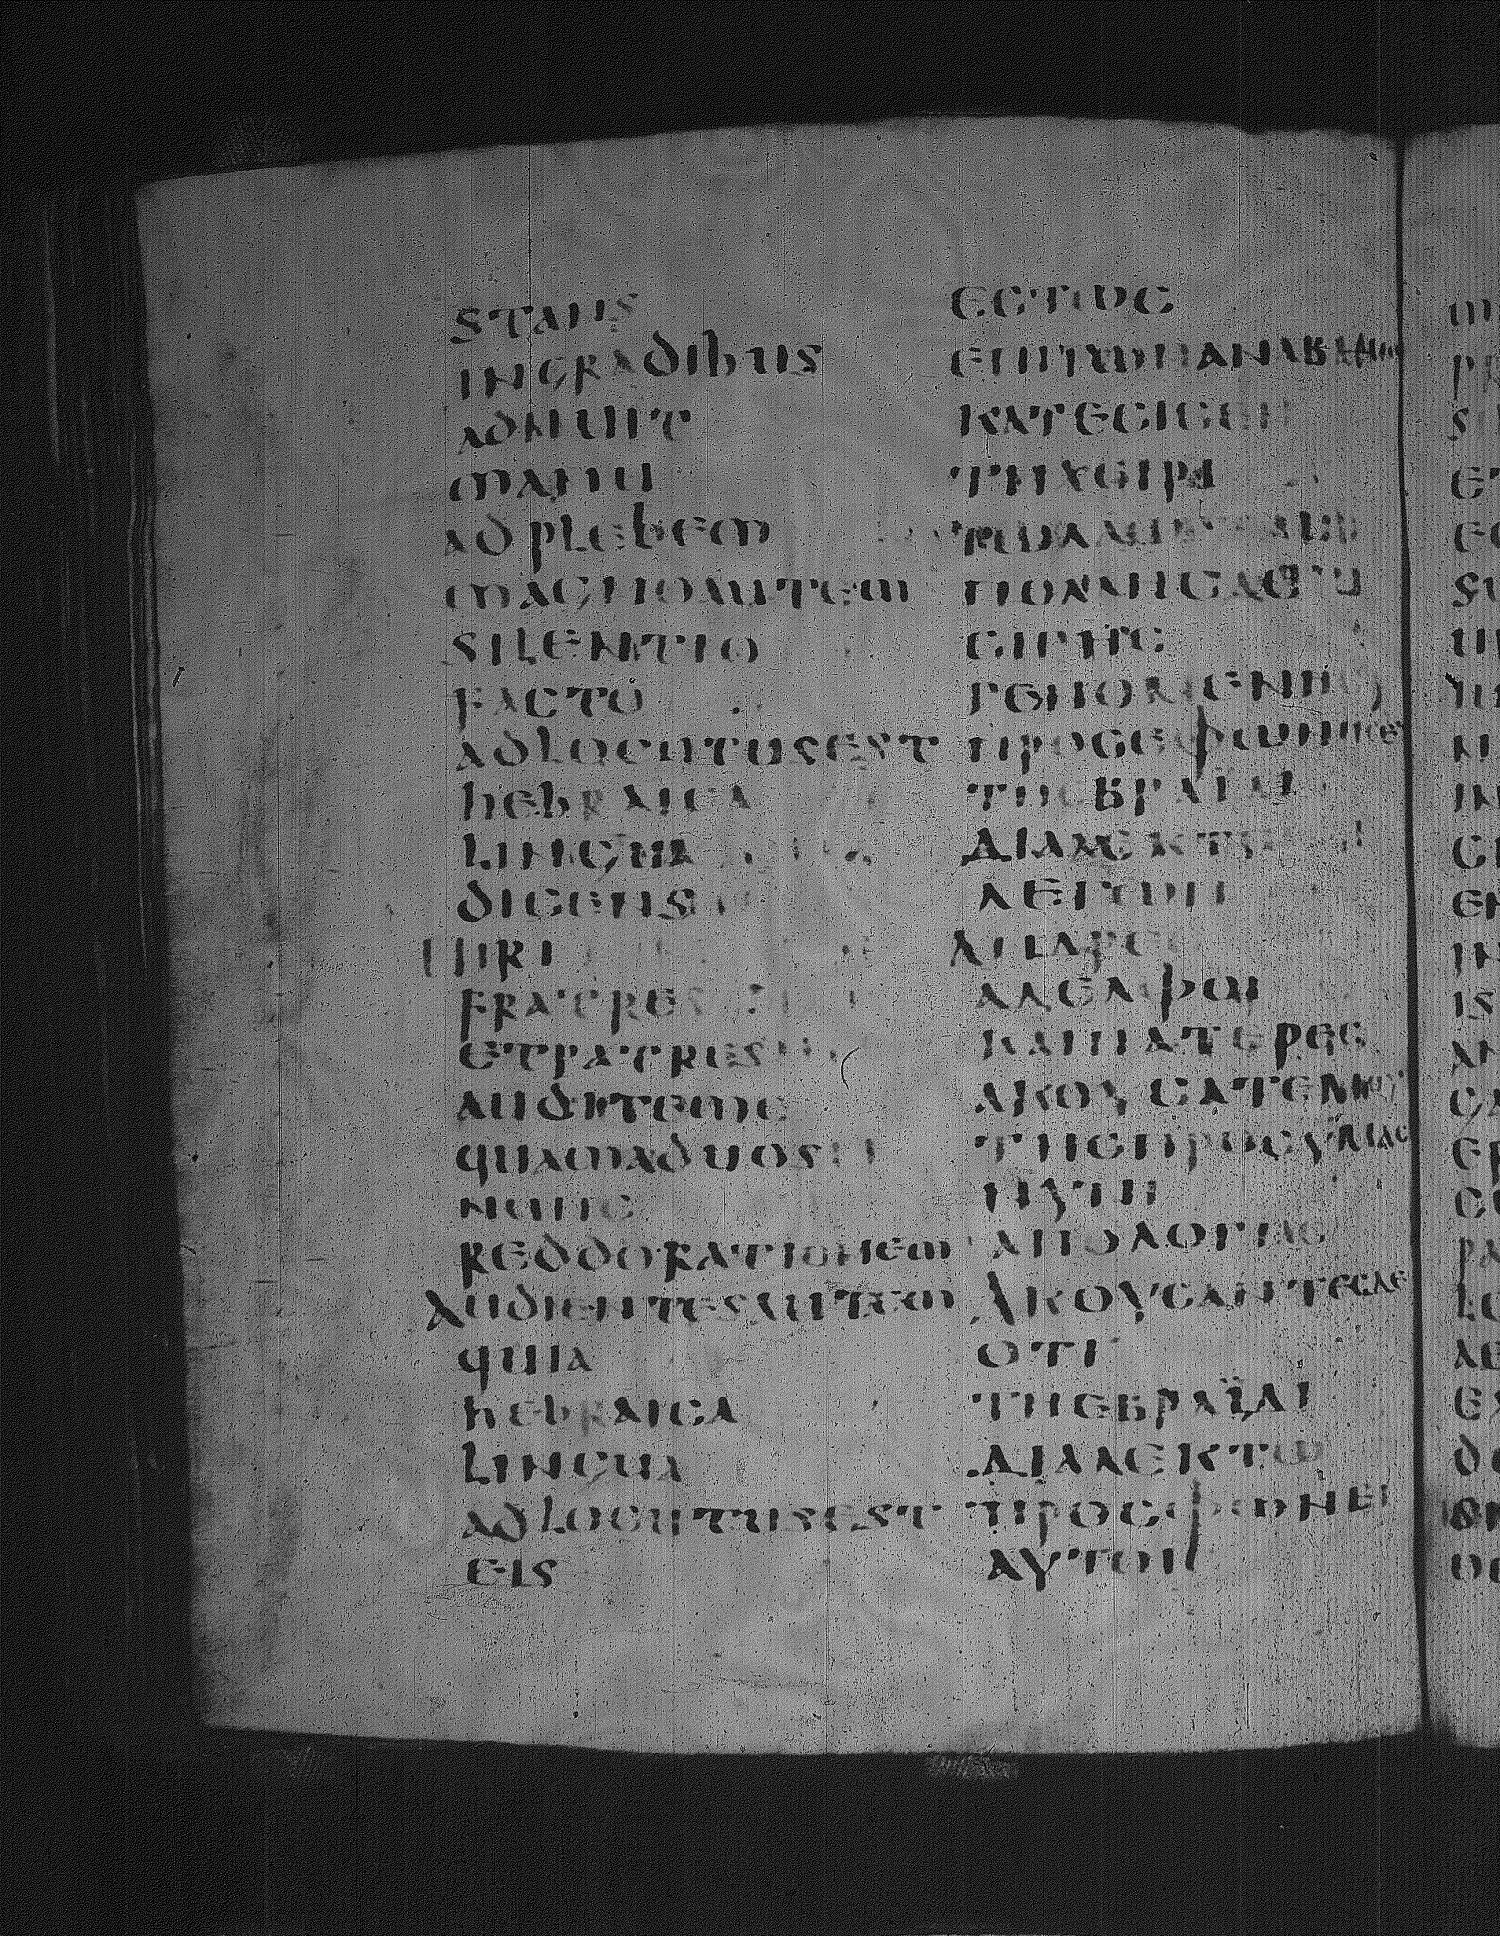 STANS
INGRADIBUS
ADNUIT
MANU
AD PLEBEM
MAGNOAUTEM
SILENTIO
FACTO
ADLOCUTUSEST
HEBRAICA
LINGUA
DICENS
UIRI
FRATRES
ETPATRES
AUDITEME
QUAMADUOS
NUNC
REDDORATIONEM
AUDIENTESAUTEM
QUIA
HEBRAICA
LINGUA
ADLOCUTUSEST
EIS
ΕϹΤΩϹ
ΕΠΙΤΩΝΑΝΑΒΑΘΜΩΝ
ΚΑΤΕϹΙϹΕΝ
ΤΗΧΕΙΡΙ
ΠΟΛΛΗϹΔΕ
ϹΙΓΗϹ
ΓΕΝΟΜΕΝΗϹ
ΠΡΟϹΕΦΩΝΗϹΕ
ΤΗΕΒΡΑΪΔΙ
ΔΙΑΛΕΚΤΩ
ΛΕΓΩΝ
ΑΝΔΡΕϹ
ΑΔΕΛΦΟΙ
ΚΑΙΠΑΤΕΡΕϹ
ΑΚΟΥϹΑΤΕΜΟΥ
ΤΗϹΠΡΟϹΥΜΑϹ
ΝΥΝΙ
ΑΠΟΛΟΓΙΑϹ
ΑΚΟΥϹΑΝΤΕϹΔΕ
ΟΤΙ
ΤΗΕΒΡΑΪΔΙ
ΔΙΑΛΕΚΤΩ
ΠΡΟϹΦΩΝΕΙ
ΑΥΤΟΙϹ